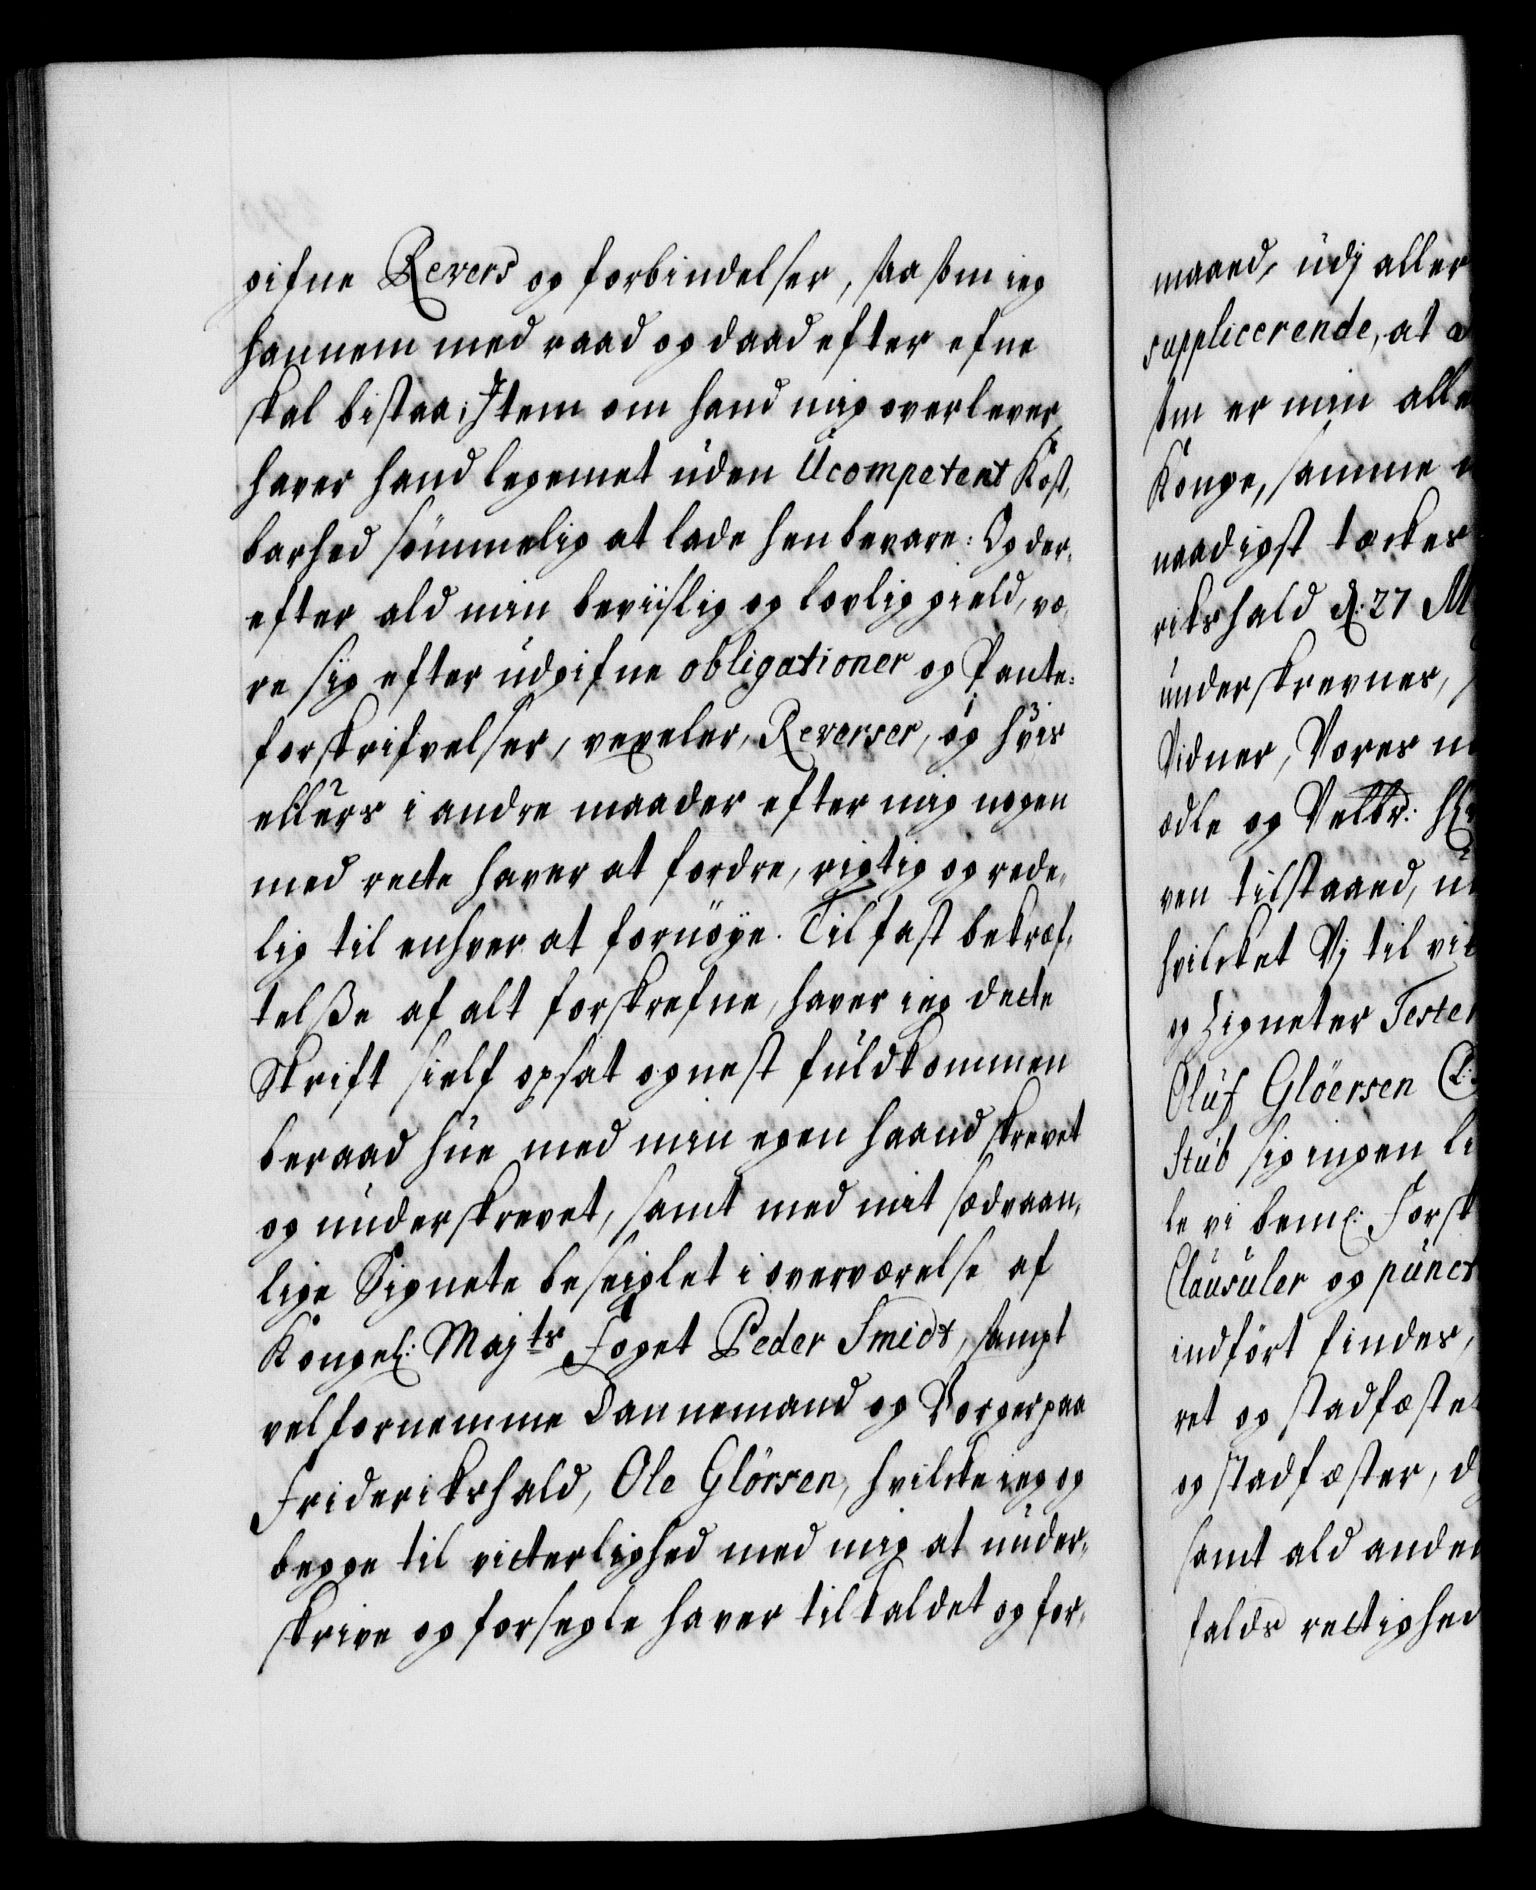 gifne Revers og forbindelser, saa som ieg
hannem med raad og daad efter efne
skal bistaa; Item om hand mig overlever,
haver hand legemet uden Ucompetent Kost,
barhed sömmelig at lade hen bevare: Og der,
efter ald min beviislig og lovlig gield, væ,
re sig efter udgifne obligationer og Pante,
forskrifvelser, vexeler, Reverser, og hvis
ellers i andre maader efter mig nogen
med rette haver at fordre, rigtig og rede,
lig til enhver at fornöye. Til fast bekræf,
telsse af alt forskrefne, haver ieg dette
Skrift sielf opsat og nest fuldkommen
beraad hue med min egen haand skrevet
og underskrevet, samt med mit sædvaan,
lige Signete beseiglet i overværelse af
Kongel: Majts Foget Peder Smidt, sampt
velfornemme Dannemand og Borger paa
Friderikshald, Ole Glörsen, hvilcke ieg og
begge til vitterlighed med mig at under,
skrive og forsegle haver tilkaldet og for,
maaed, udj aller
supplicerende, at
som er min alle
Konge, samme
naadigst tæckes
rikshald d: 27 M
underskrevner,
Vidner, Vores
ædle og Velbr:
ven tilstaaed,
hvilcket Vj til vit
og Zigneter Teste
Oluf Glöersen
Stub sig ingen li
le vi bem: Forsk
Clausuler og punct
indfört findes,
ret og stadfæstet
og stadfæster, d
samt ald anden
falds rettighed